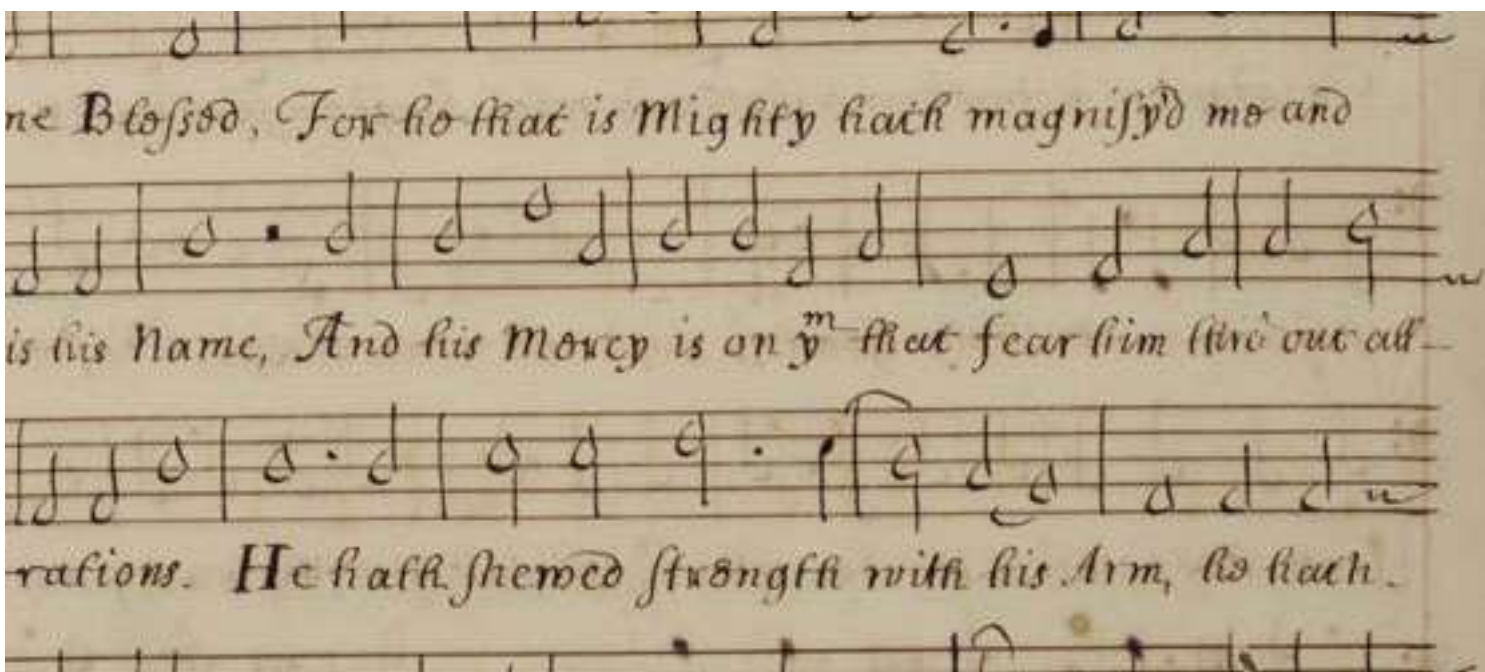 ne Blessed, For he that is Mighty hath magnify'd me and
is his Name, And his Mercy is on yᵐ that fear him thro' out all
rations. He hath shewed strength with his Arm, he hath